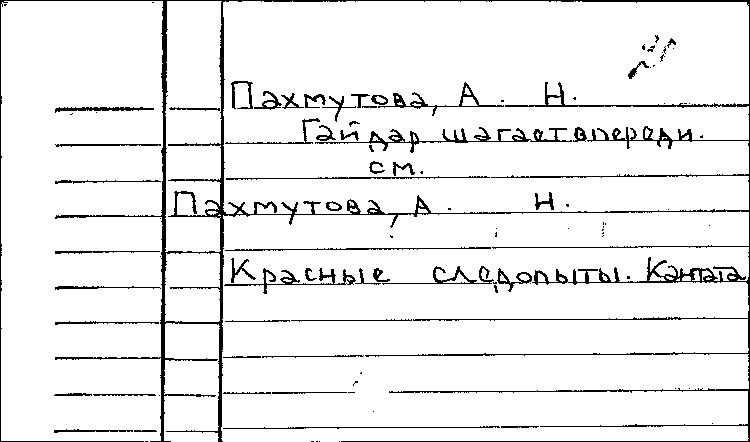 Пахмутова, А. Н.
Гайдар шагает впереди.
см.
Пахмутова, А. Н.
Красные следопыты. Кантата